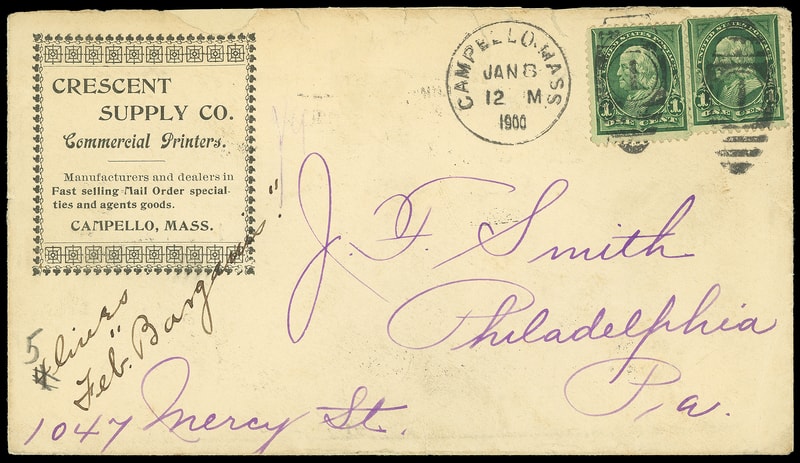 CRESCENT
SUPPLY CO.
Commercial Printers.
Manufacturers and dealers in
Fast selling Mail Order special-
ties and agents goods.
CAMPELLO, MASS.
CAMPELLO, MASS
JAN 8
12 M
1900
1 1
ONE CENT
1 1
ONE CENT
J. F. Smith
Philadelphia
Pa.
1047 Mercy St.
5
4 lines
Feb. Bargains"